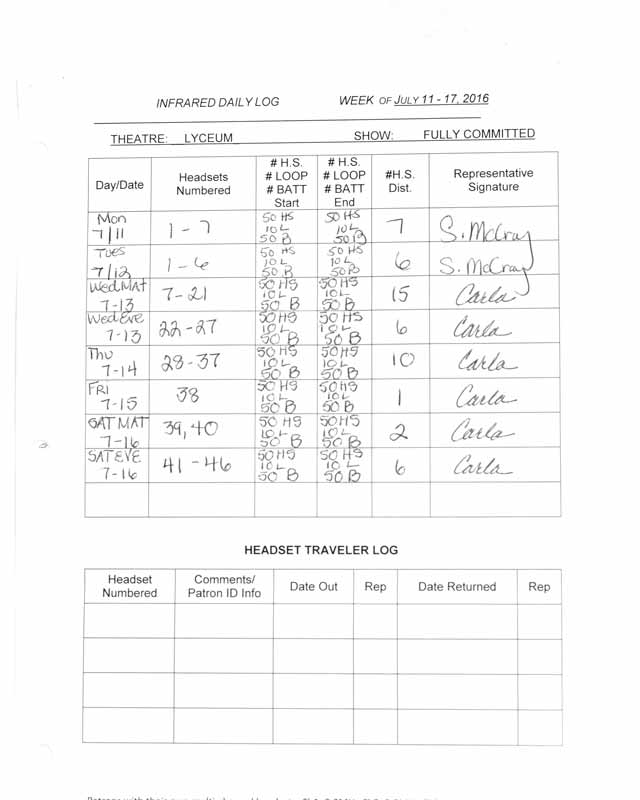 INFRARED DAILY LOG WEEK OF JULY 11 - 17, 2016
THEATRE: LYCEUM SHOW: FULLY COMMITTED
Day/Date Headsets Numbered # H.S. # LOOP # BATT Start # H.S. # LOOP # BATT End #H.S. Dist. Representative Signature
Mon 7/11 1 - 7 50 HS 10 L 50 B 50 HS 10 L 50 B 7 S. McCray
TUES 7/12 1 - 6 50 HS 10 L 50 B 50 HS 10 L 50 B 6 S. McCray
Wed MAT 7-13 7-21 50 HS 10 L 50 B 50 HS 10 L 50 B 15 Carla
Wed Eve 7-13 22-27 50 HS 10 L 50 B 50 HS 10 L 50 B 6 Carla
Thu 7-14 28-37 50 HS 10 L 50 B 50 HS 10 L 50 B 10 Carla
FRI 7-15 38 50 HS 10 L 50 B 50 HS 10 L 50 B 1 Carla
SAT MAT 7-16 39, 40 50 HS 10 L 50 B 50 HS 10 L 50 B 2 Carla
SAT EVE 7-16 41 - 46 50 HS 10 L 50 B 50 HS 10 L 50 B 6 Carla
HEADSET TRAVELER LOG
Headset Numbered Comments/ Patron ID Info Date Out Rep Date Returned Rep